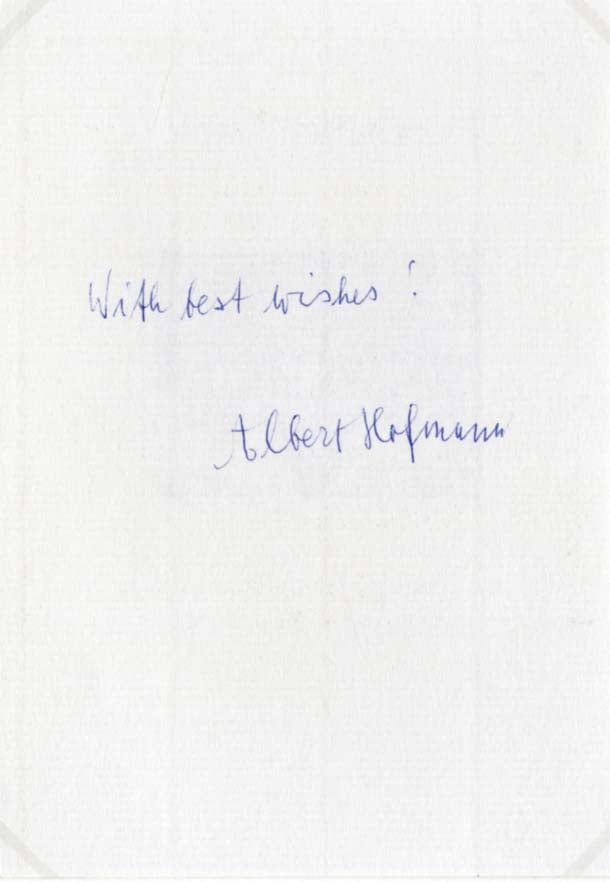 With best wishes !
Albert Hofmann